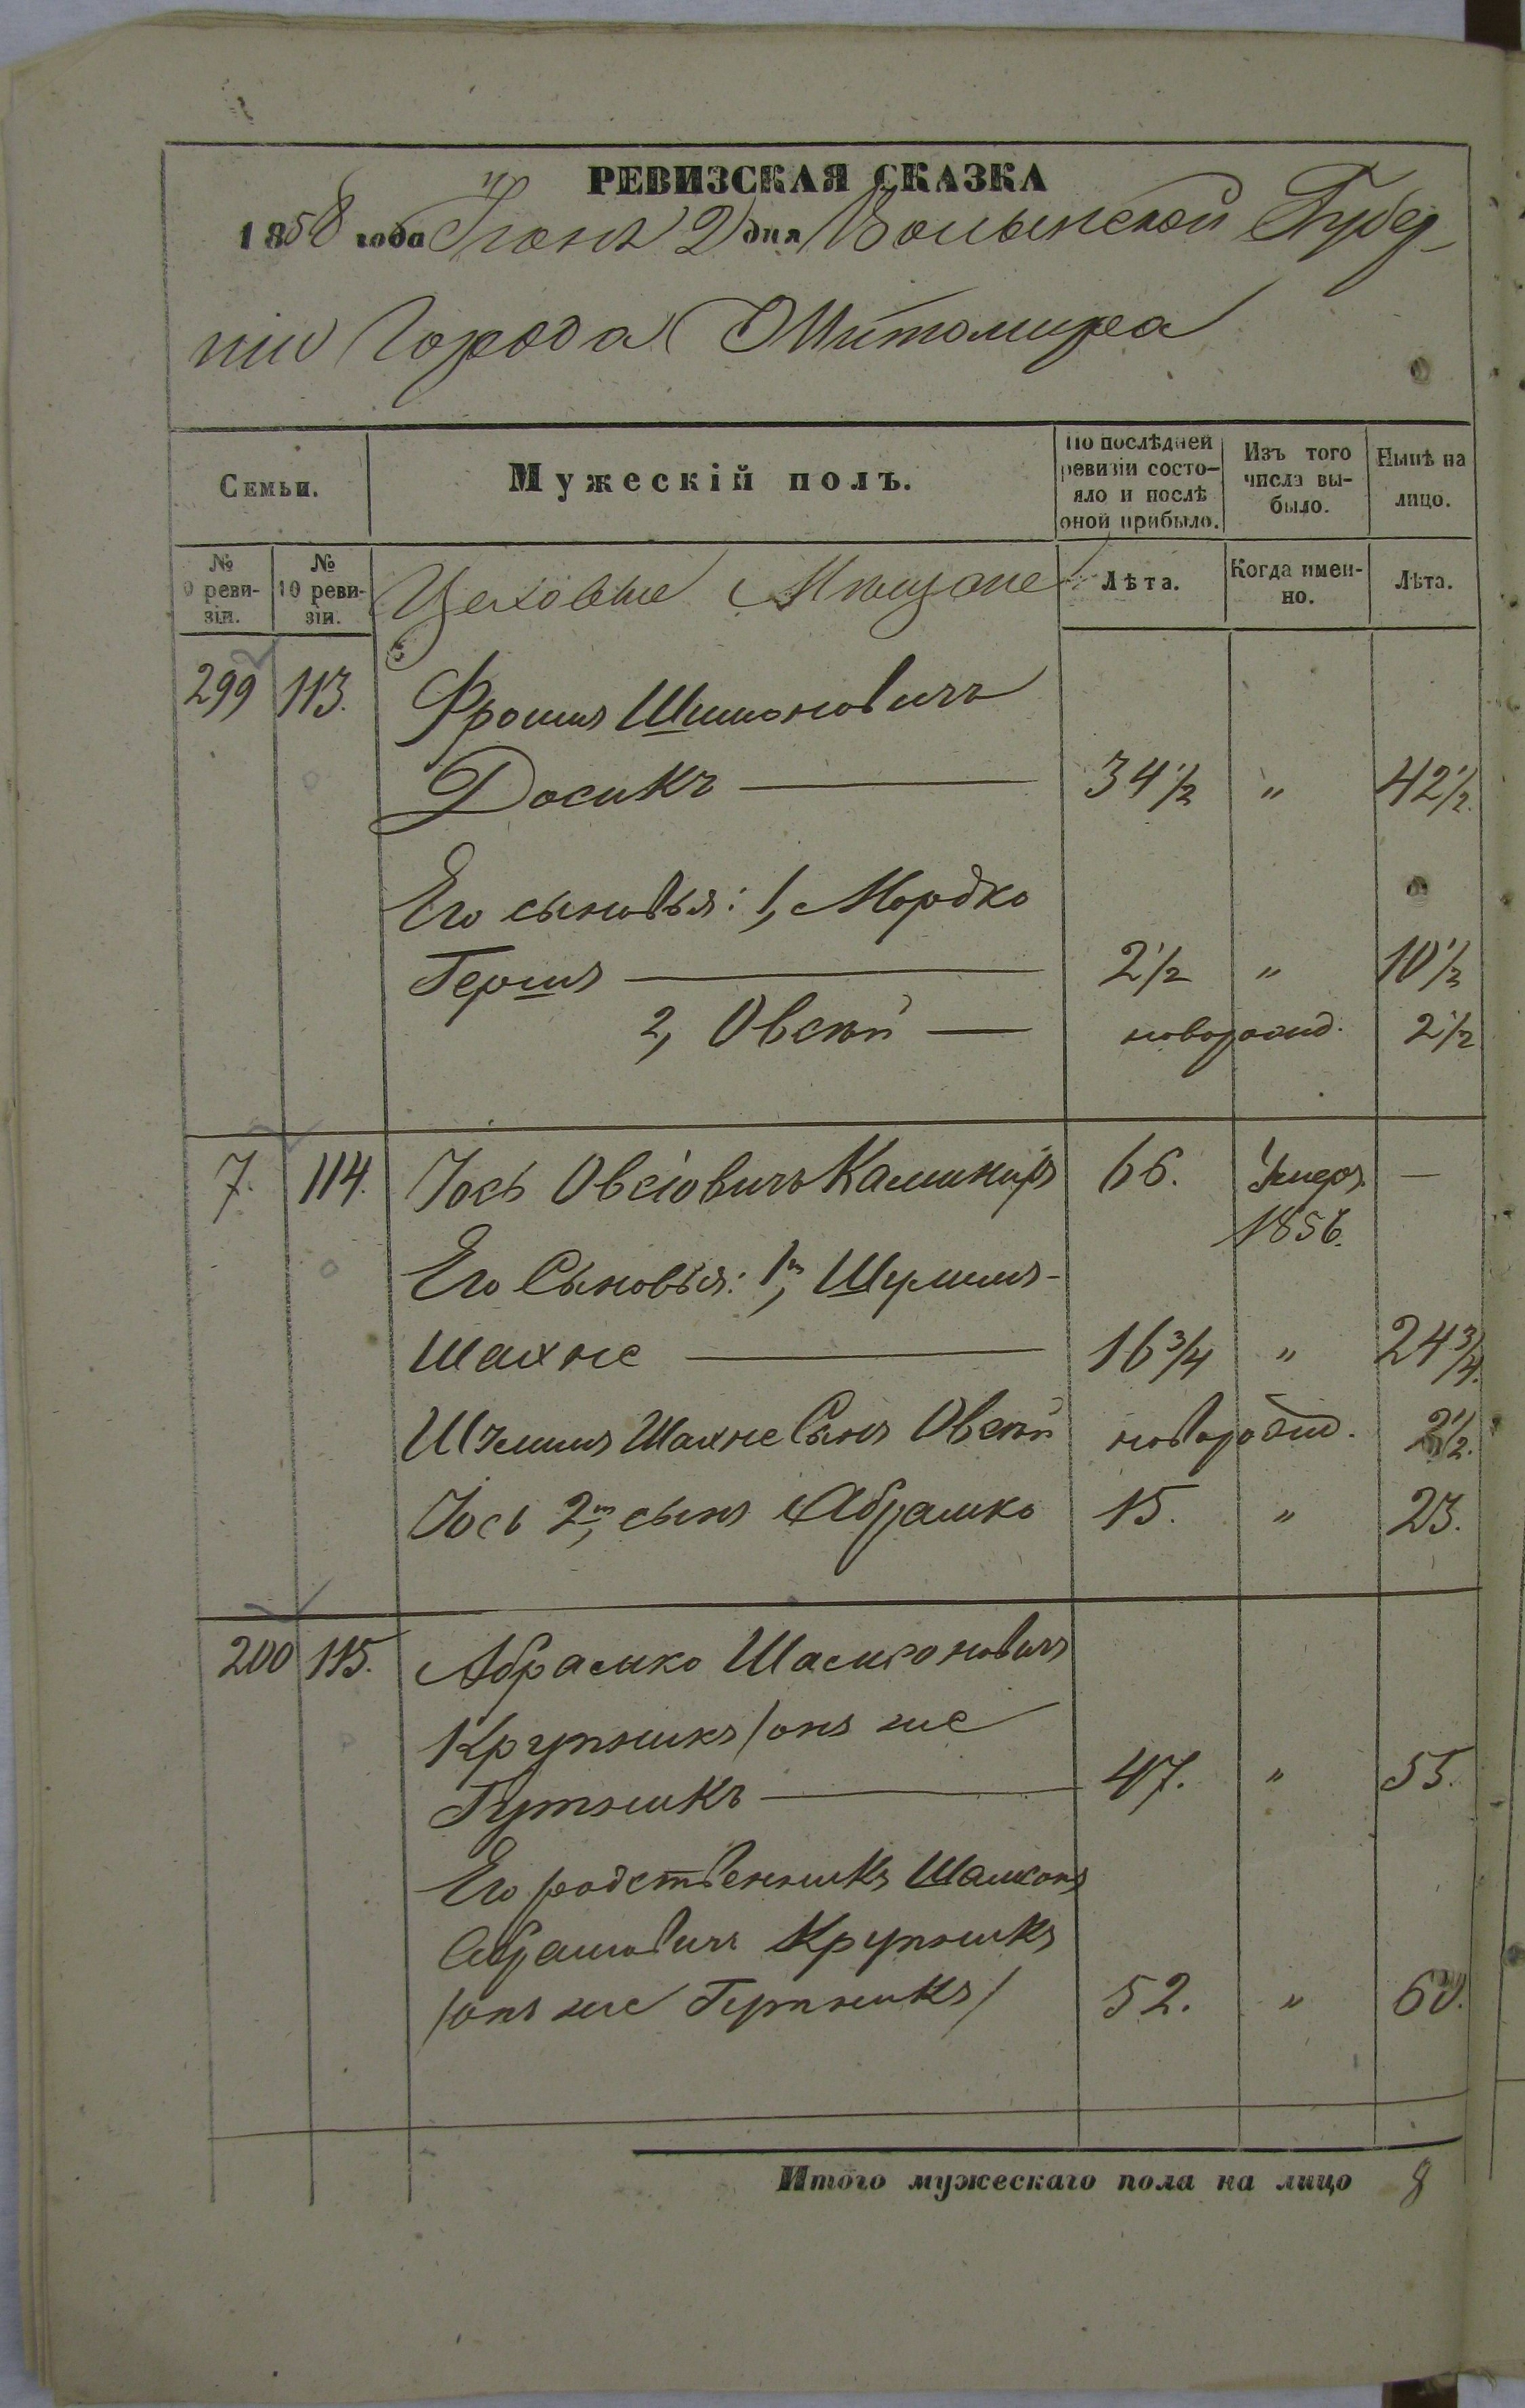 РЕВИЗСКАЯ СКАЗКА
1858 года Іюня 2 дня Волынской Губер-
ніи Города Житомира
Семьи.
Мужескій полъ.
По послѣдней ревизіи состо-
яло и послѣ
оной прибыло.
Изъ того числа вы-
было.
Нынѣ на лицо.
№ 9 реви-
зіи.
№ 10 реви-
зіи.
Цеховые Мѣщане
Лѣта.
Когда имен-
но.
Лѣта.
299 113. Фроимъ Шимоновичъ
Досикъ 34 1/2 " 42 1/2.
Его сыновья: 1, Мордко
Гершъ 2 1/2 " 10 1/2
2, Овсѣй новорожд. 2 1/2
7. 114. Іось Овсіовичъ Камініръ 66. Умеръ 1856. —
Его Сыновья: 1й,
Шахне 16 3/4 " 24 3/4.
Шахне Сынъ Овсѣй новорожд. 2 1/2.
Іось 2й, сынъ Абрамко 15. " 23.
200 115. Абрамко Шамсоновичъ
Крупникъ /онъ же
Гутникъ 47. " 55.
Его родственникъ Шамсонъ
Абрамовичъ Крупникъ
/онъ же Гутникъ/ 52. " 60.
Итого мужескаго пола на лицо 8